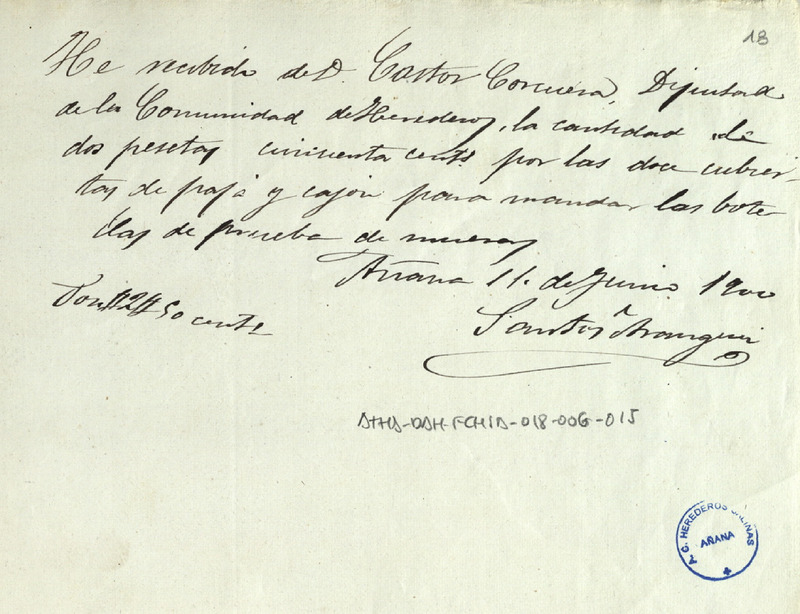 13
He recibido de D. Castor Corcuera, Diputado
de la Comunidad de Herederos, la cantidad de
dos pesetas cincuenta cents por las doce cubier-
tas de paja y cajon para mandar las bote-
llas de prueba de mueras
Añana 11. de Junio 1900
Son 2 # 50 cents
Santos Arangui
ATHA-DAH-FCHIA-018-006-015
C. HEREDEROS SALINAS
AÑANA